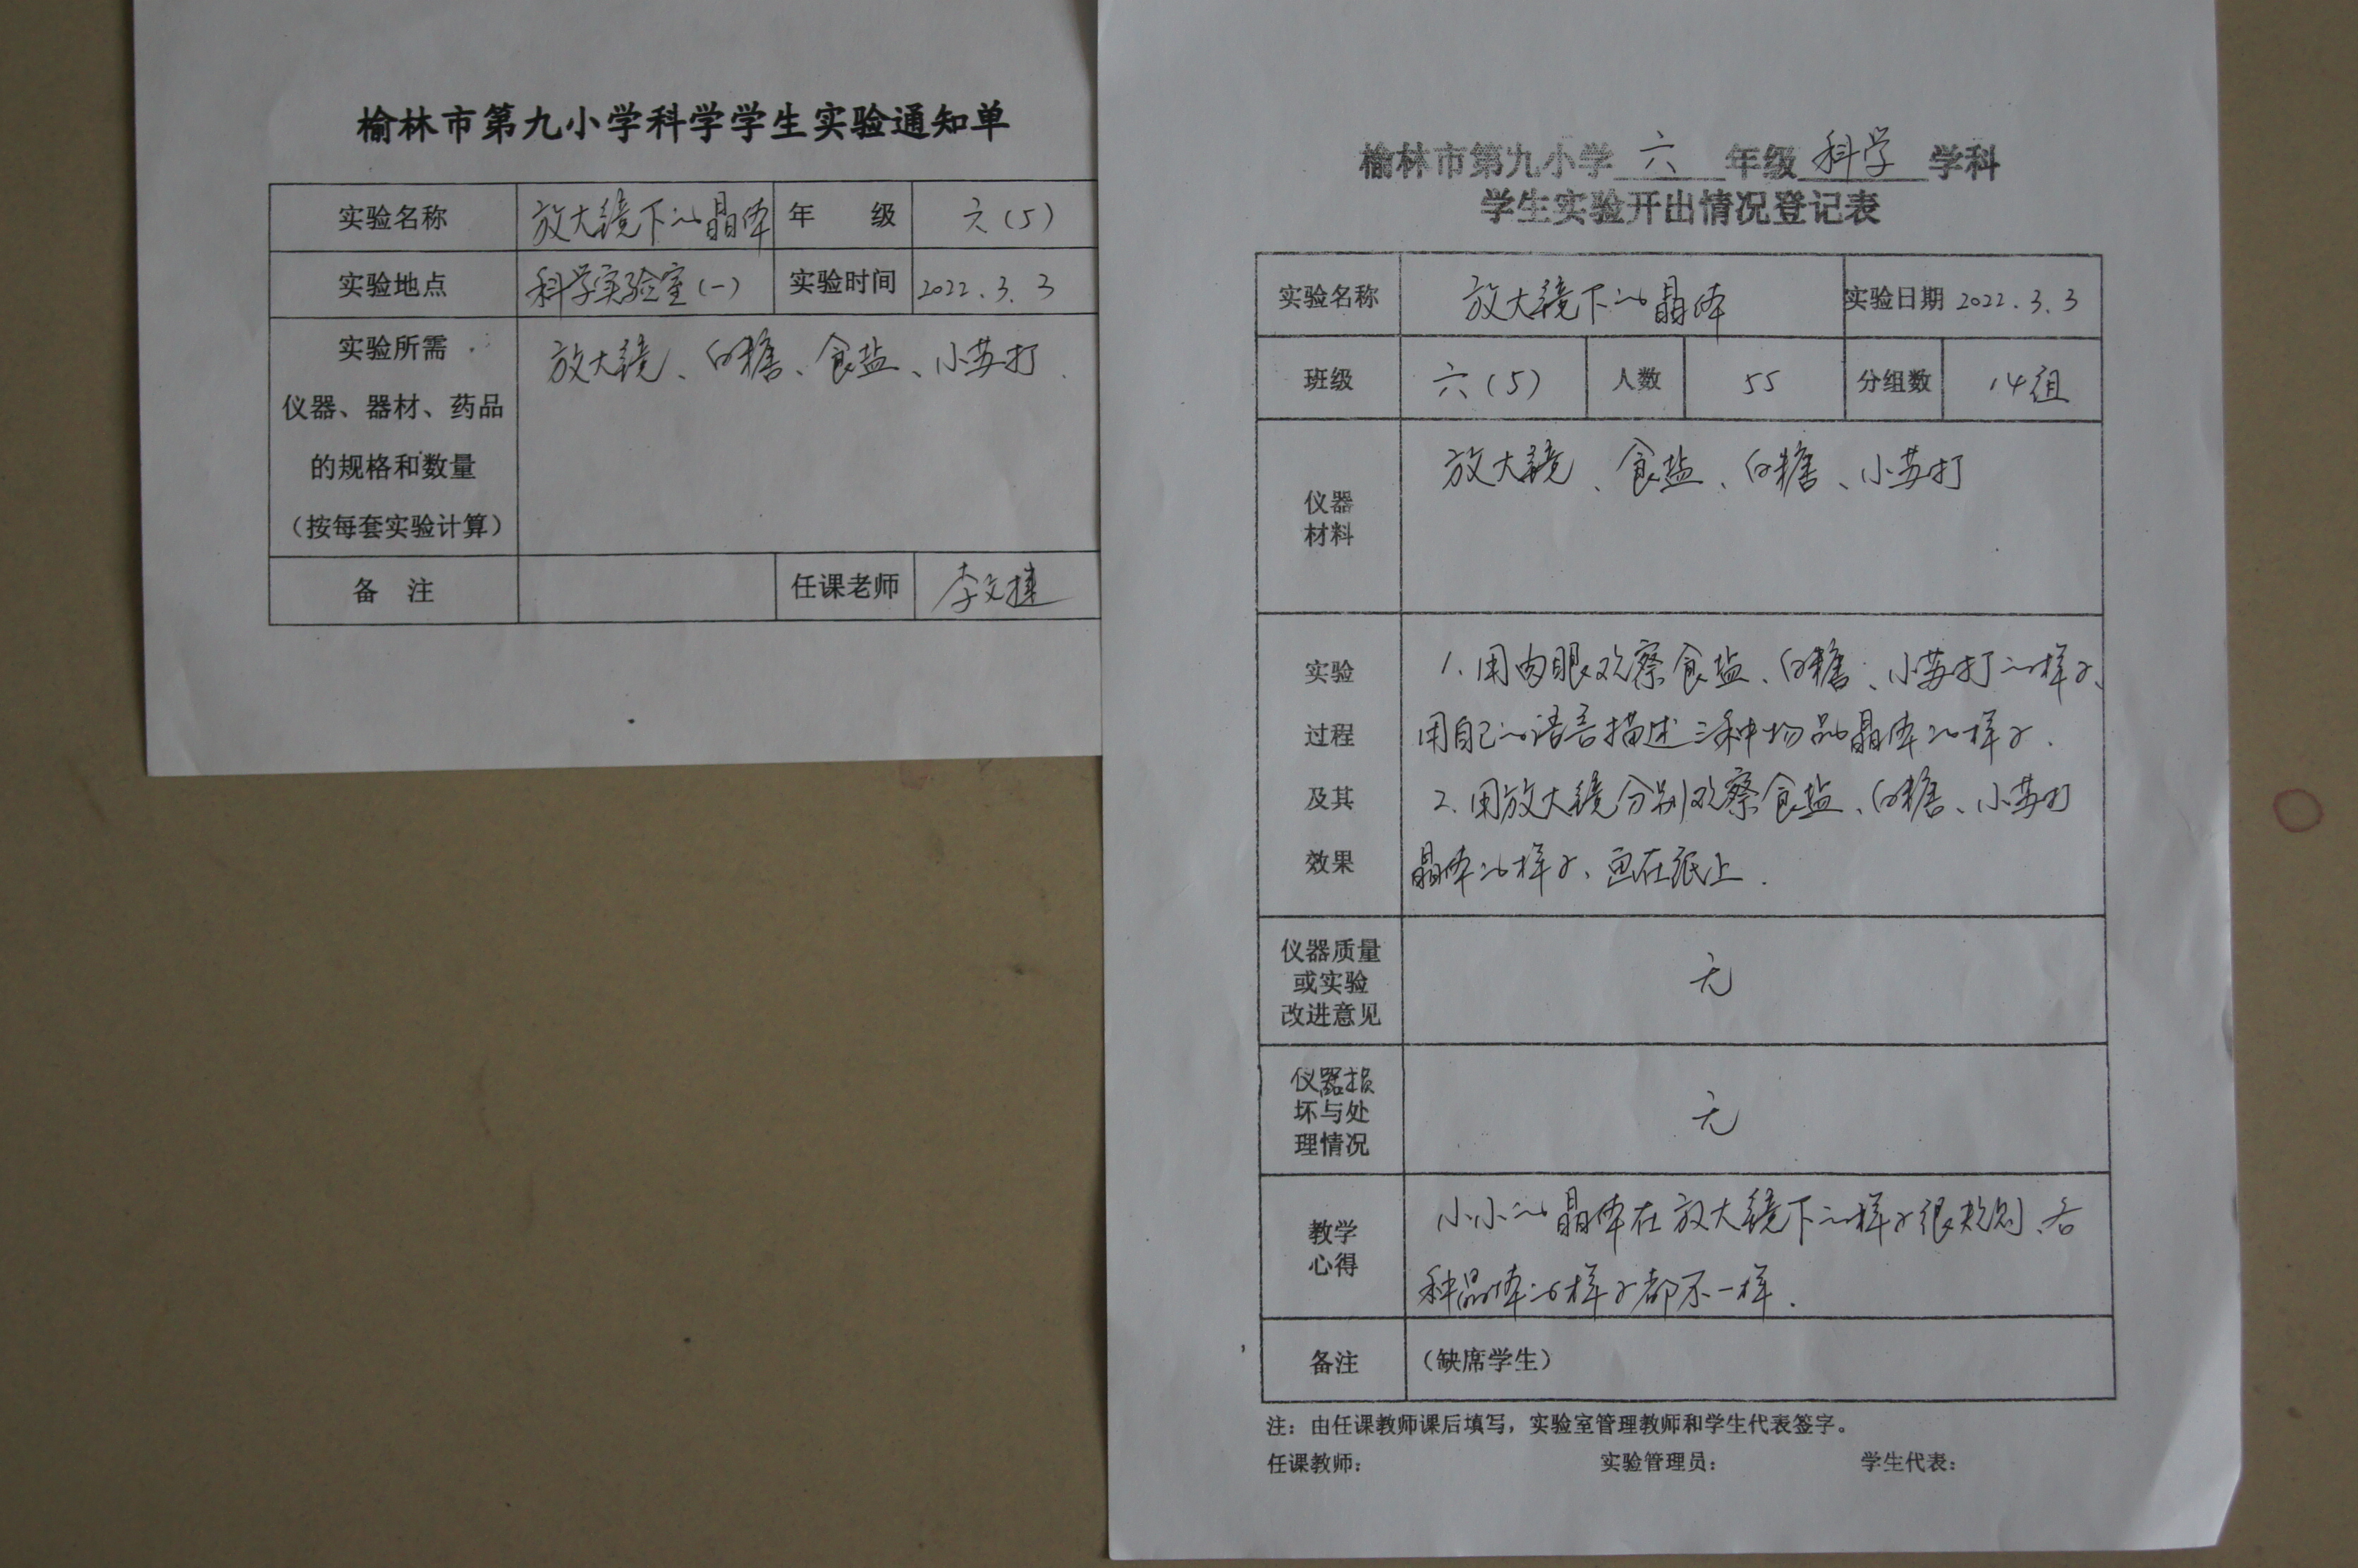 榆林市第九小学科学学生实验通知单
实验名称 放大镜下的晶体 年 级 六(5)
实验地点 科学实验室(一) 实验时间 2022.3.3
实验所需
仪器、器材、药品
的规格和数量
(按每套实验计算)
放大镜、白糖、食盐、小苏打.
备 注 任课老师 李文
榆林市第九小学 六 年级 科学 学科
学生实验开出情况登记表
实验名称 放大镜下的晶体 实验日期 2022.3.3
班级 六(5) 人数 55 分组数 14组
仪器
材料
放大镜、食盐、白糖、小苏打
实验
过程
及其
效果
1.用肉眼观察食盐、白糖、小苏打的样子、
用自己的语言描述三种物品晶体的样子.
2.用放大镜分别观察食盐、白糖、小苏打
晶体的样子、画在纸上.
仪器质量
或实验
改进意见
无
仪器损
坏与处
理情况
无
教学
心得
小小的晶体在放大镜下的样子很规则、各
种晶体的样子都不一样.
备注 (缺席学生)
注：由任课教师课后填写，实验室管理教师和学生代表签字。
任课教师： 实验管理员： 学生代表：